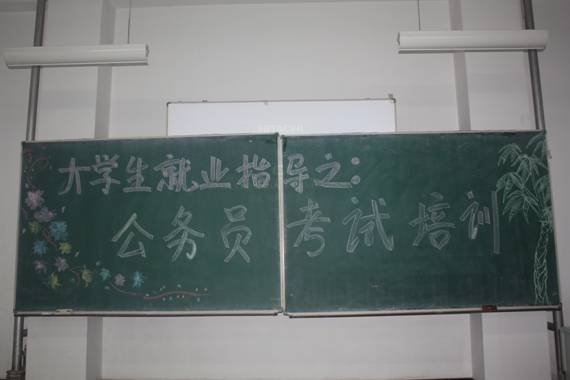 大学生就业指导之：
公务员考试培训